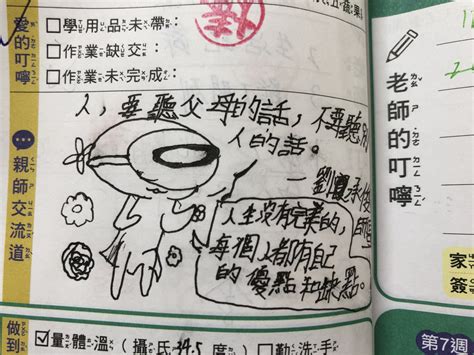 五蔬果
愛的叮嚀
□學用品未帶：
□作業缺交：
□作業未完成：
老師的叮嚀
親師交流道
人，要聽父母的話，不要聽別
人的話。
—劉
人生沒有完美的，
每個人都有自己
的優點和缺點。
家
簽
做到
☑量體溫(攝氏34.5度)
□勤洗手
第7週